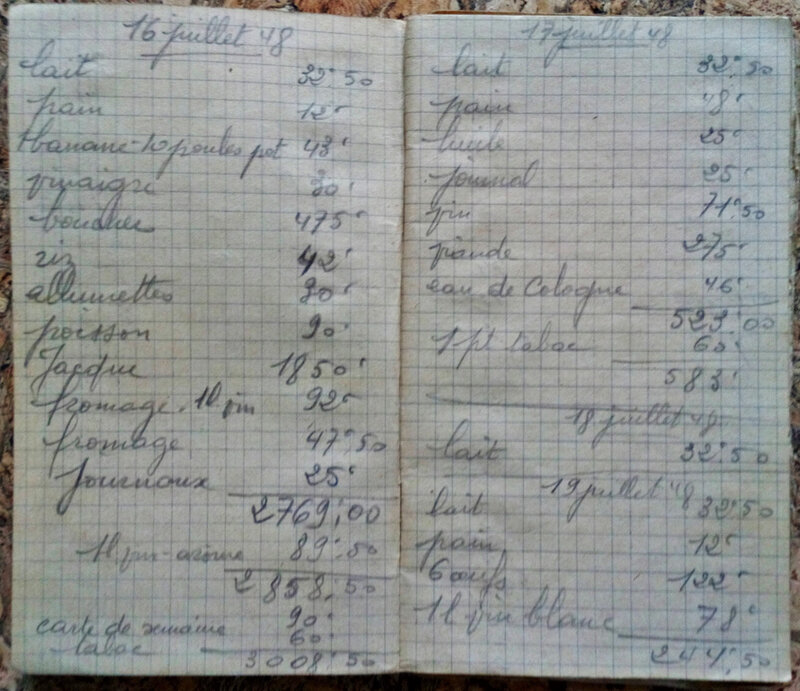 16 juillet 48
lait 32.50
pain 12
banane 43
vinaigre 30
boucher 475
riz 42
allumettes 30
poisson 90
Jacque 1850
fromage. 1l vin 92
fromage 47.50
Journaux 25
2769.00
1l vin-arôme 89.50
2858.50
carte de semaine 90
tabac 60
3008.50
17 juillet 48
lait 32.50
pain 48
huile 25
journal 25
vin 71.50
viande 275
eau de Cologne 46
523.00
1 pt tabac 60
583
18 juillet 48
lait 32.50
19 juillet 48
lait 32.50
pain 12
6 oeufs 122
1l vin blanc 78
244.50